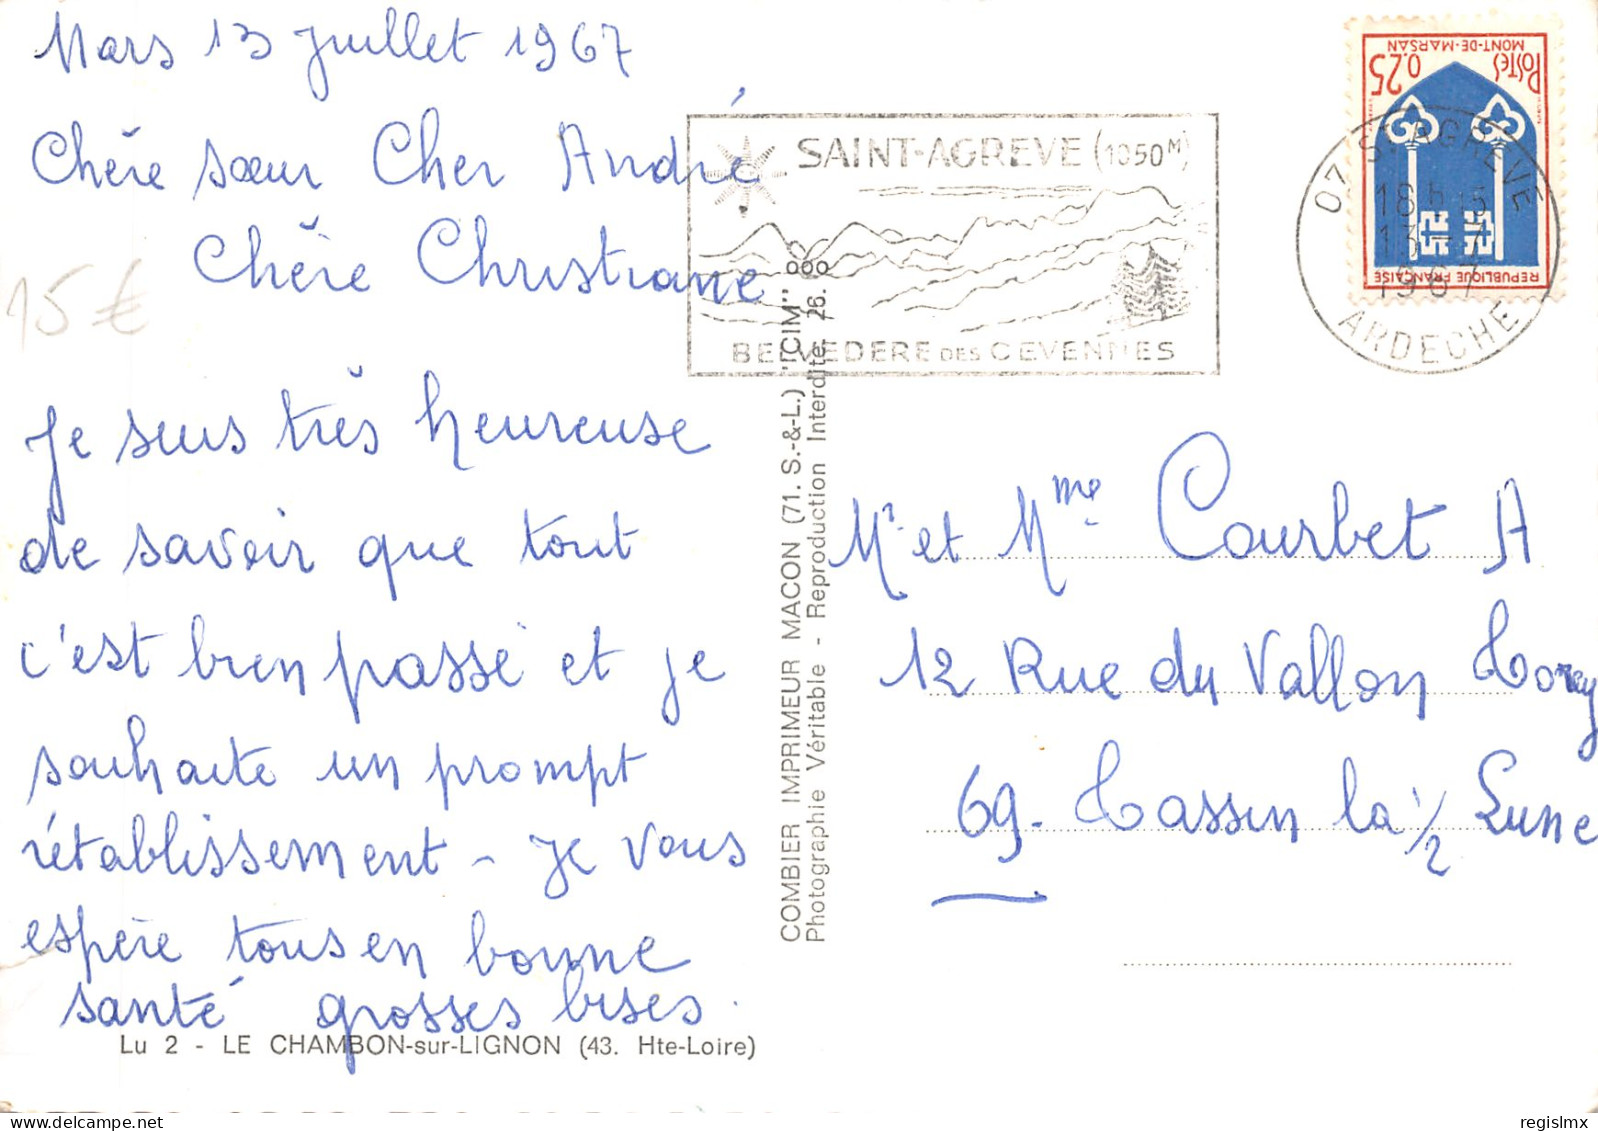 Mars 13 juillet 1967
Chère sœur Cher André
Chère Christiane
15 €
Je suis très heureuse
de savoir que tout
c'est bien passé et je
souhaite un prompt
rétablissement - Je vous
espère tous en bonne
santé grosses bises.
Lu 2 - LE CHAMBON-sur-LIGNON (43. Hte-Loire)
COMBIER IMPRIMEUR MACON (71. S.-&-L.) "CIM"
Photographie Véritable - Reproduction Interdite 26.000
SAINT-AGREVE (1050M)
BELVEDERE DES CEVENNES
POSTES
0,25
MONT-DE-MARSAN
REPUBLIQUE FRANÇAISE
07 ST AGREVE
18H15
13-7
1967
ARDECHE
Mr et Mme Courbet A
12 Rue du Vallon
69- Tassin la 1/2 Lune
regislmx
delcampe.net